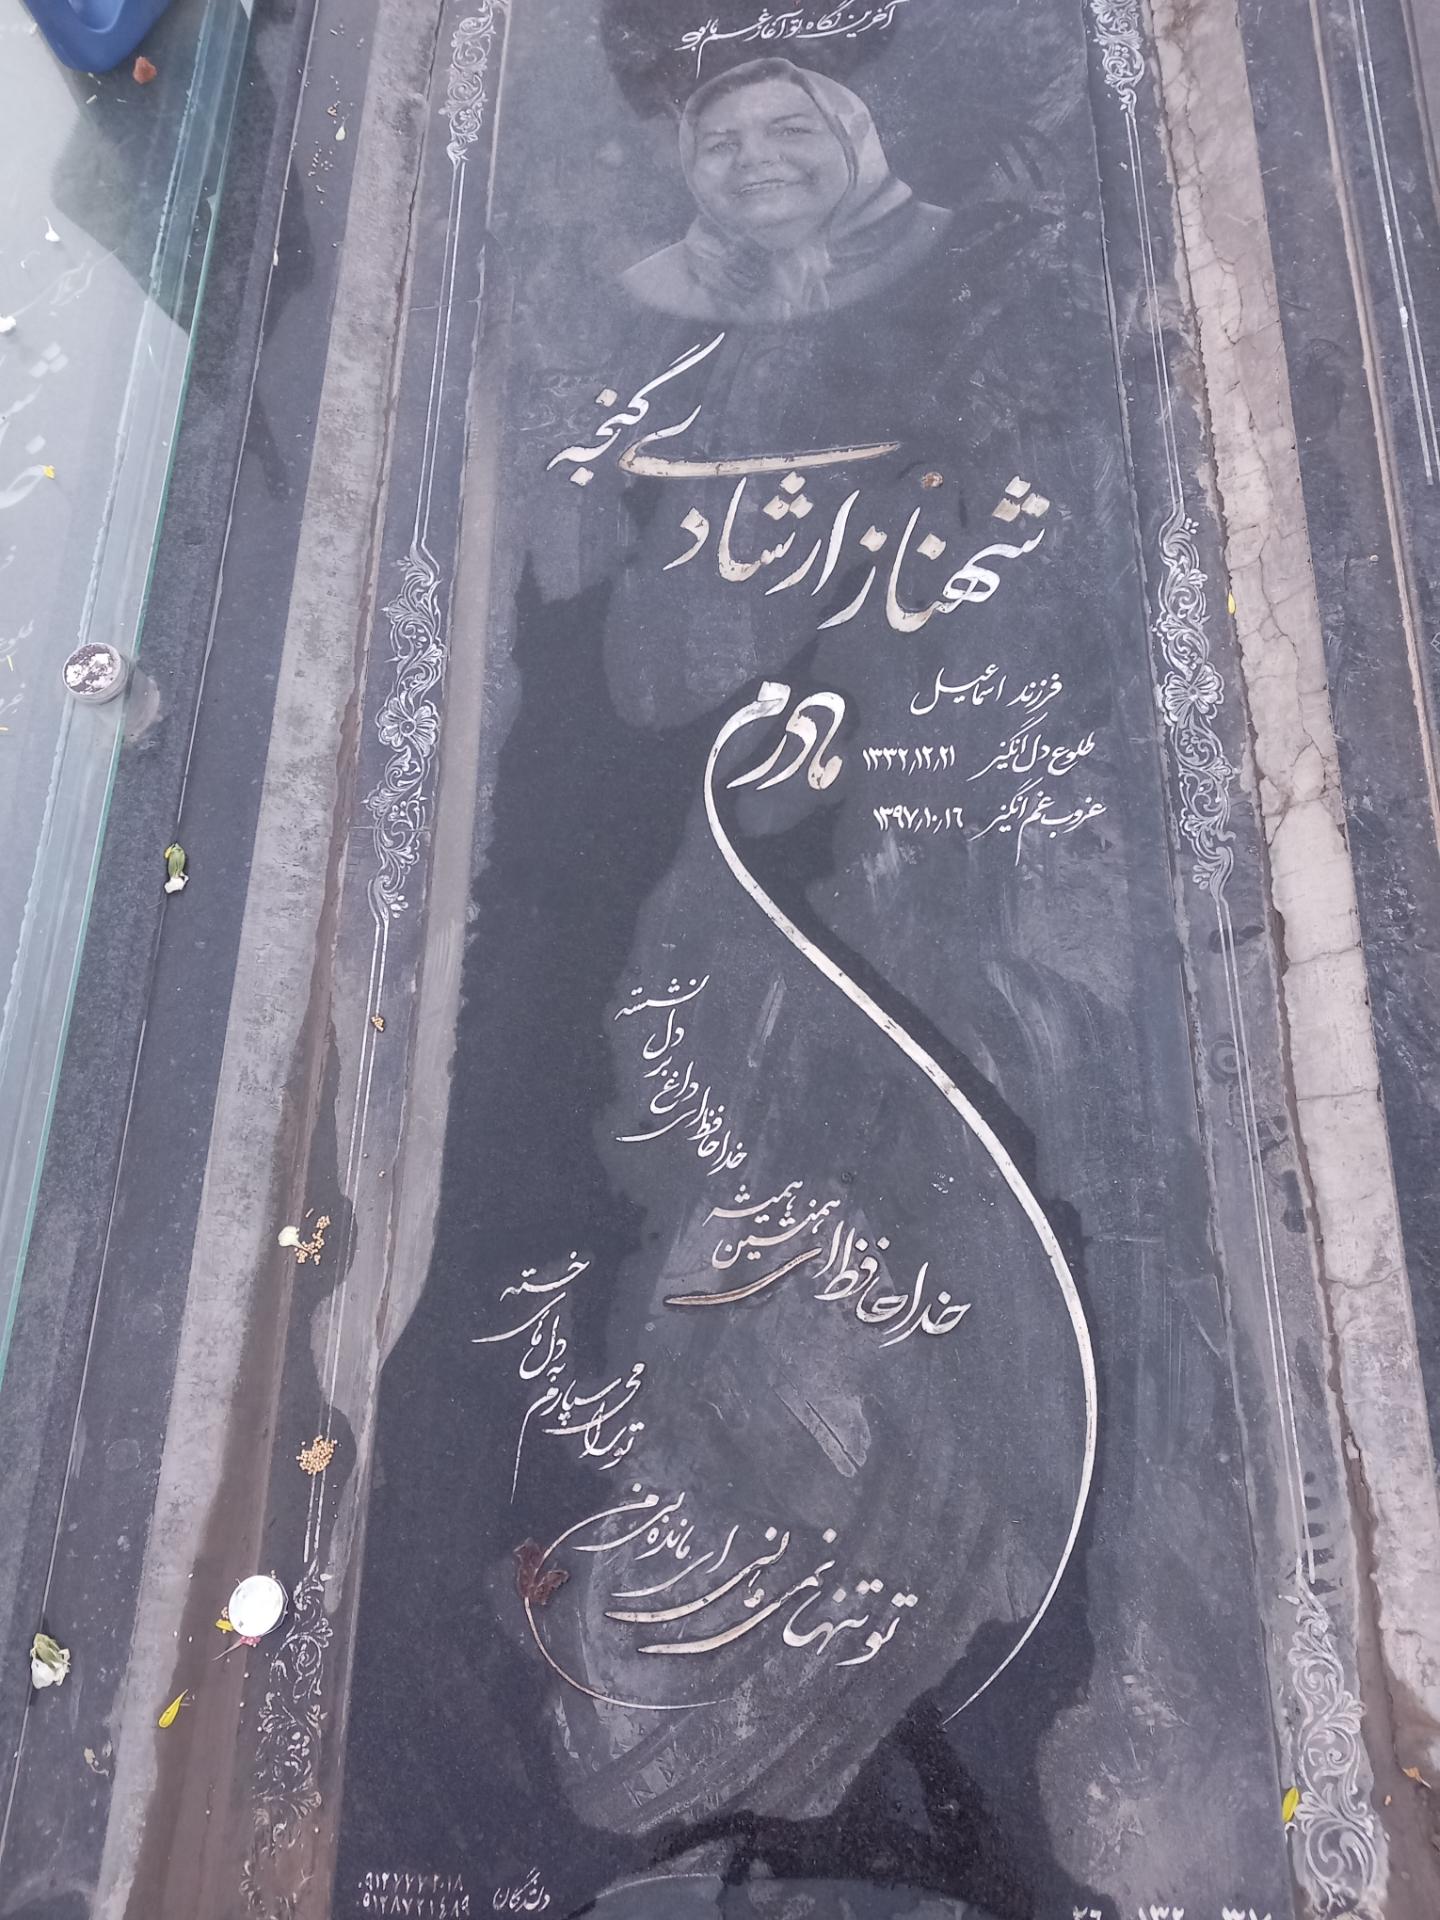 آخرین نگاه تو آغاز غم ما بود
شهناز ارشادی گنجه
فرزند اسماعیل
طلوع دل انگیز ۱۳۳۲/۱۲/۲۱
غروب غم انگیز ۱۳۹۷/۱۰/۱۶
مادرم
خداحافظ ای داغ بر دل نشسته
خداحافظ ای همنشین همیشه
تو را می سپارم به دل های خسته
تو تنها نمی مانی ای مانده بی من